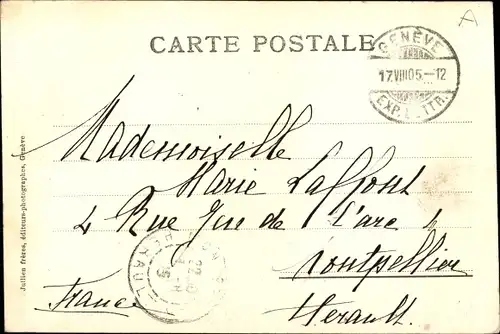 A
CARTE POSTALE
GENÈVE
17.VIII 05.-12
EXP. LETTR.
Mademoiselle
Marie Laffont
4 Rue Jeu de L'arc
Montpellier
France.
Herault.
HERAULT
Jullien frères, éditeurs-photographes, Genève